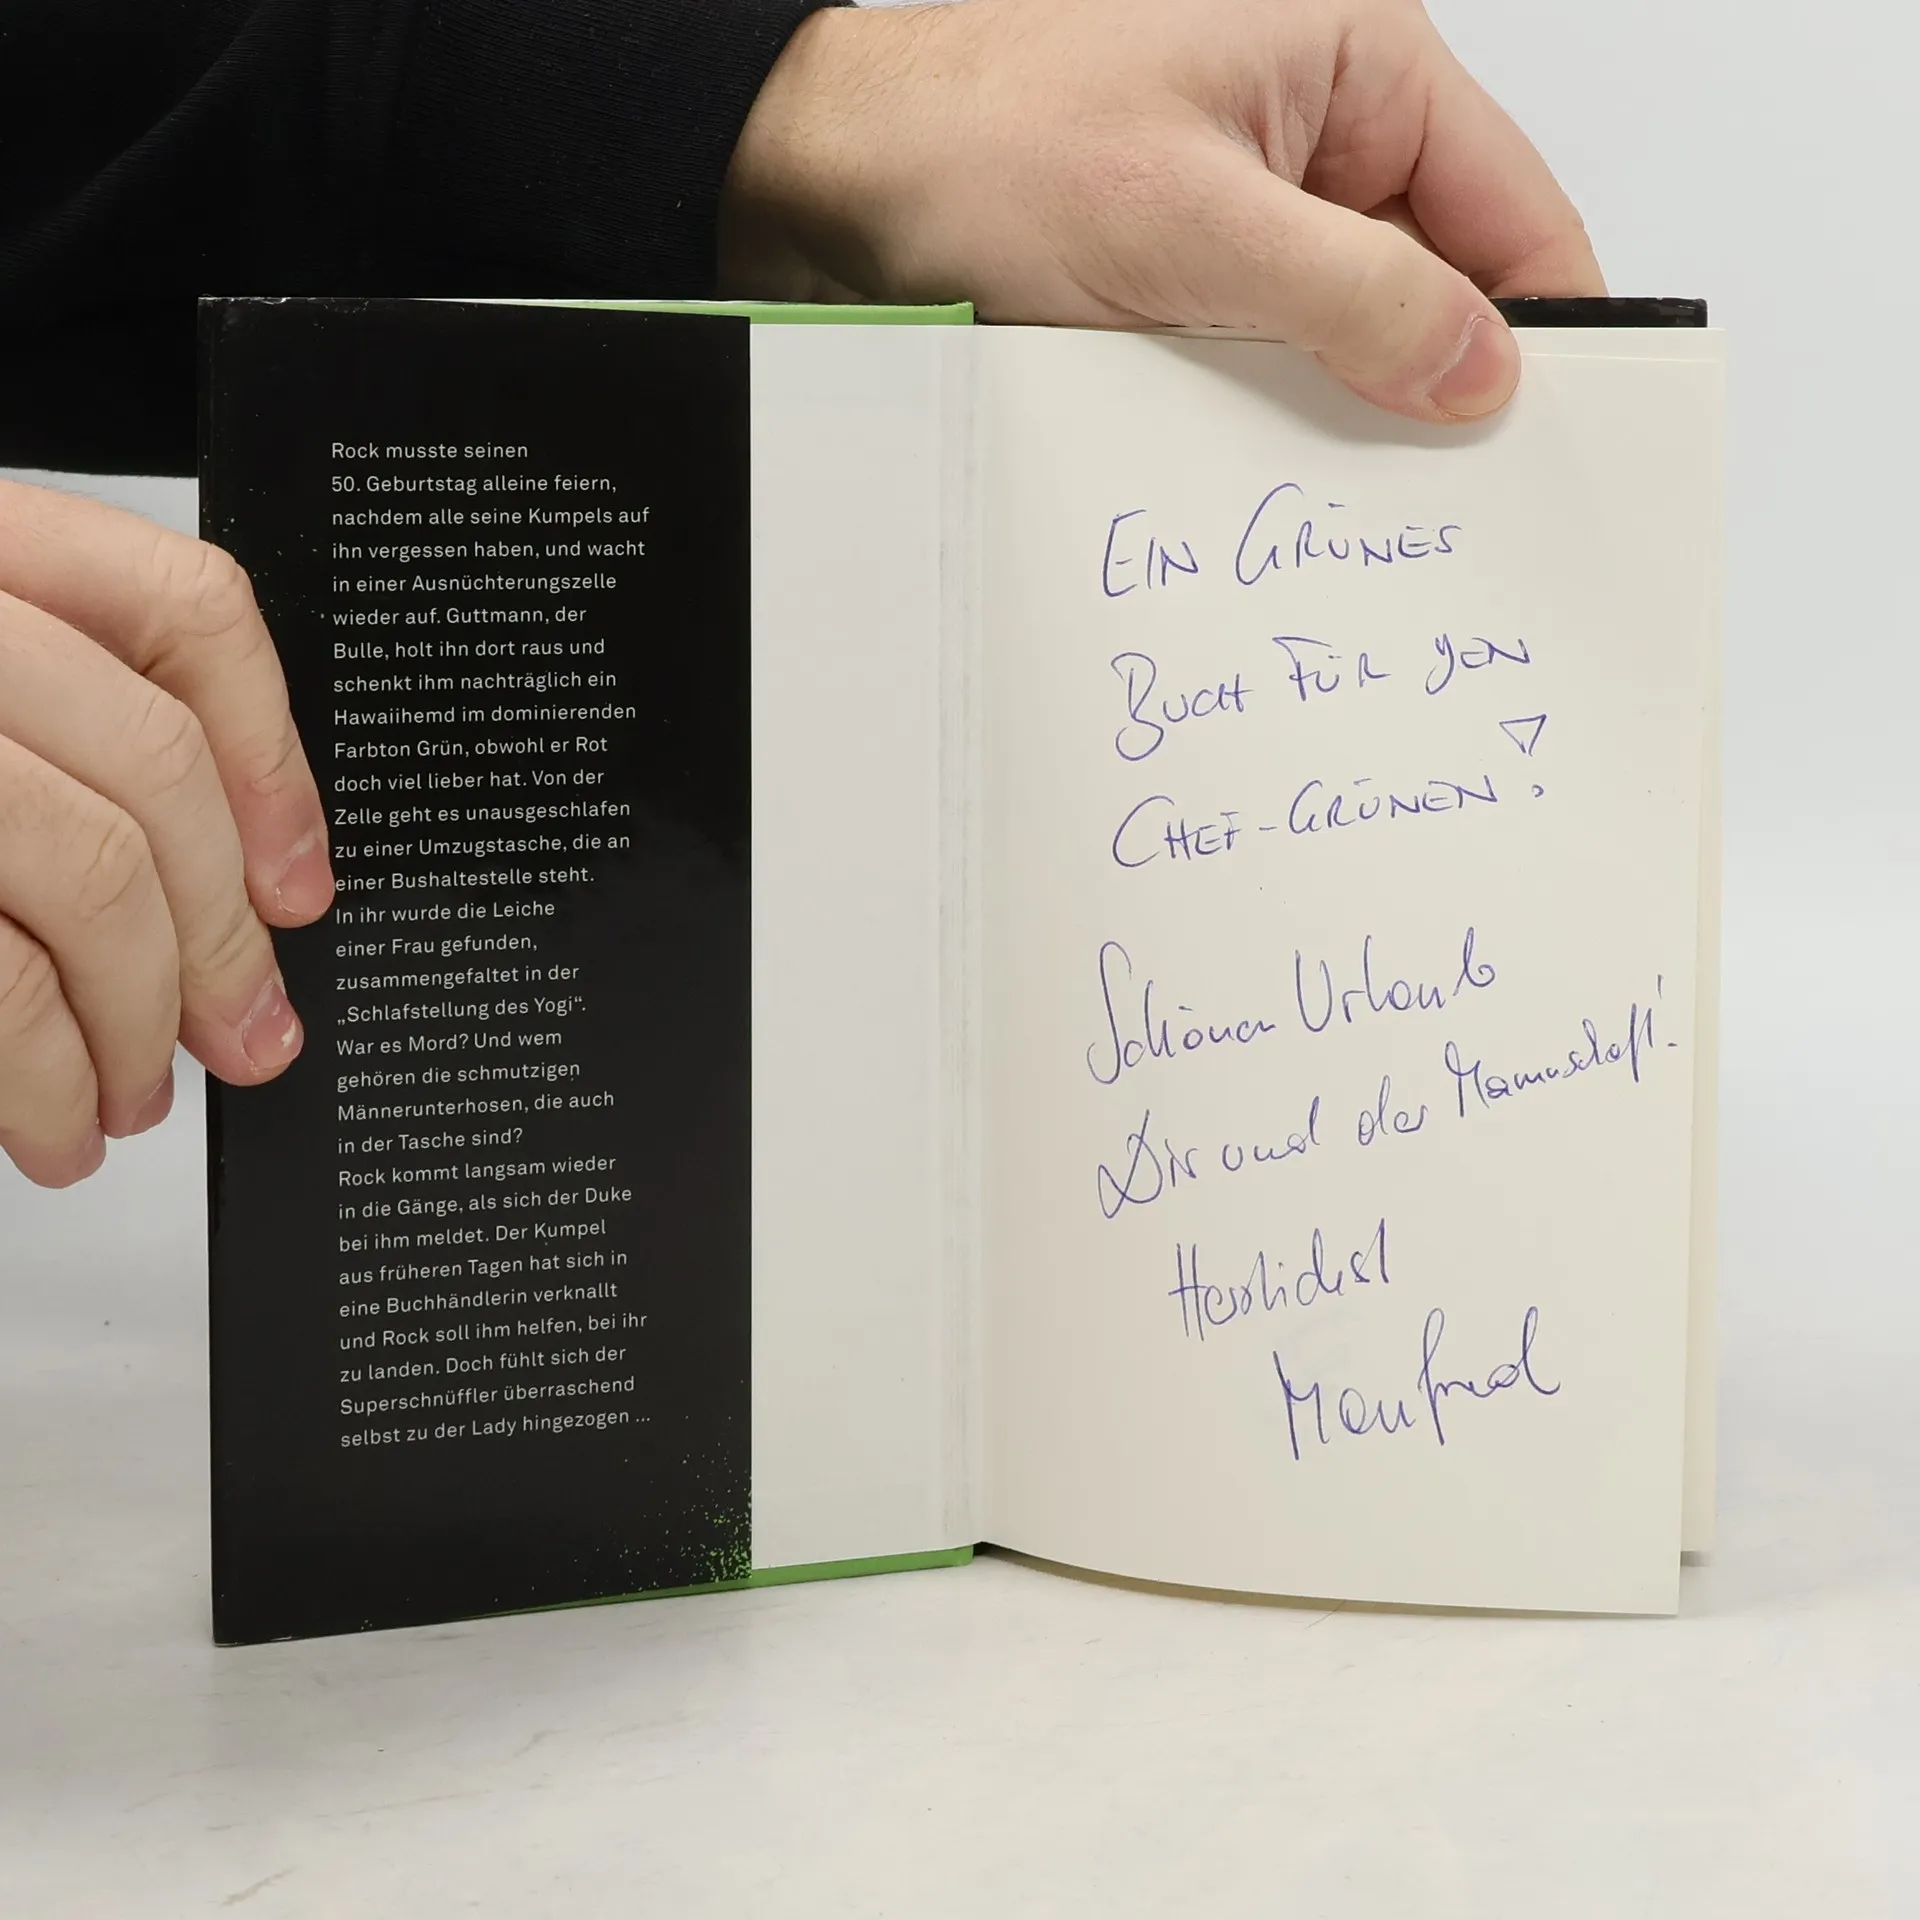 Rock musste seinen
50. Geburtstag alleine feiern,
nachdem alle seine Kumpels auf
ihn vergessen haben, und wacht
in einer Ausnüchterungszelle
wieder auf. Guttmann, der
Bulle, holt ihn dort raus und
schenkt ihm nachträglich ein
Hawaiihemd im dominierenden
Farbton Grün, obwohl er Rot
doch viel lieber hat. Von der
Zelle geht es unausgeschlafen
zu einer Umzugstasche, die an
einer Bushaltestelle steht.
In ihr wurde die Leiche
einer Frau gefunden,
zusammengefaltet in der
„Schlafstellung des Yogi“.
War es Mord? Und wem
gehören die schmutzigen
Männerunterhosen, die auch
in der Tasche sind?
Rock kommt langsam wieder
in die Gänge, als sich der Duke
bei ihm meldet. Der Kumpel
aus früheren Tagen hat sich in
eine Buchhändlerin verknallt
und Rock soll ihm helfen, bei ihr
zu landen. Doch fühlt sich der
Superschnüffler überraschend
selbst zu der Lady hingezogen ...
EIN GRÜNES
BUCH FÜR
CHEF-GRÜNEN!
Schönen Urlaub
Dir und der Mannschaft!
Herzlichst
Manfred